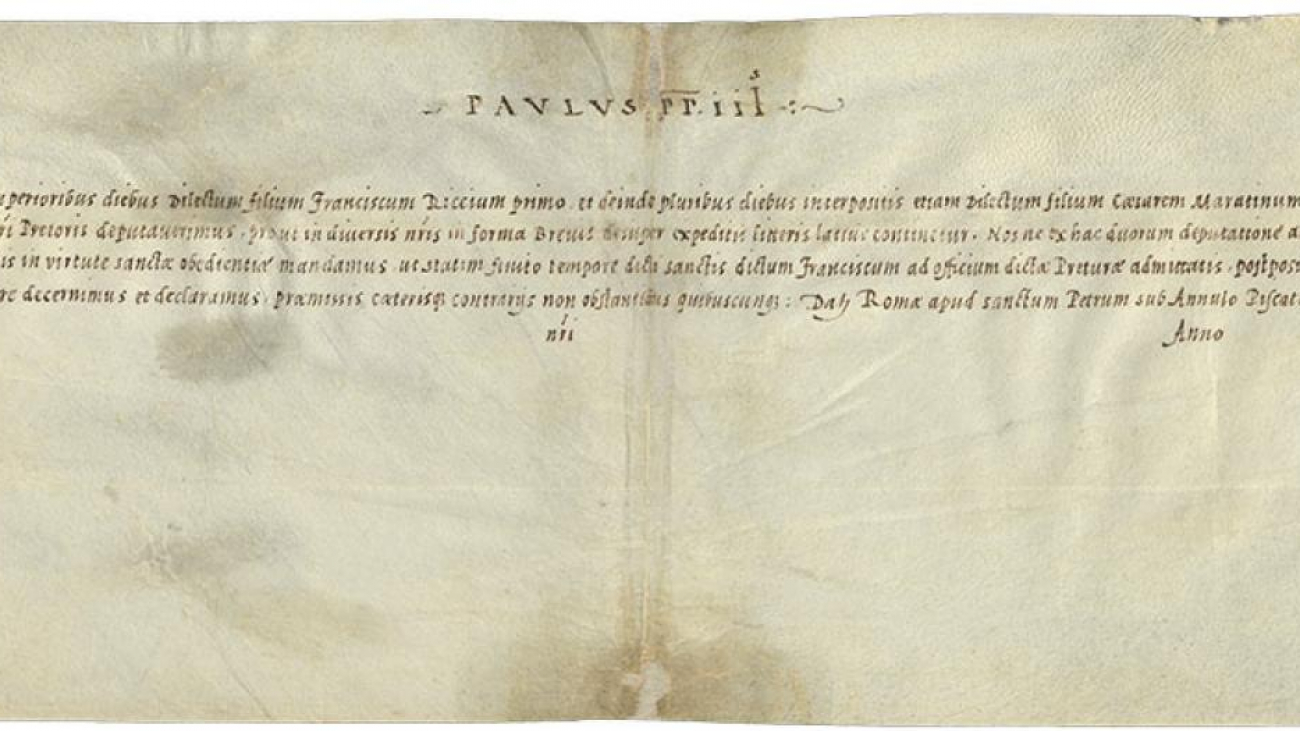 PAVLVS PP. iii^s
perioribus diebus Dilectum filium Franciscum Riccium primo et deinde pluribus diebus interpositis etiam Dilectum filium Cæsarem Maratinum
ri Pretoris deputauerimus, prout in diuersis nris in forma Breuis desuper expeditis litteris latius continetur. Nos ne ex hac duorum deputatione a
is in virtute sanctæ obedientiæ mandamus ut statim finito tempore dicti dictum Franciscum ad officium dictæ Preturæ admittatis, postpos
re decernimus et declaramus, præmissis cæterisq contrarijs non obstantibus quibuscunq: Dat Romæ apud sanctum Petrum sub Annulo Piscat
nri Anno